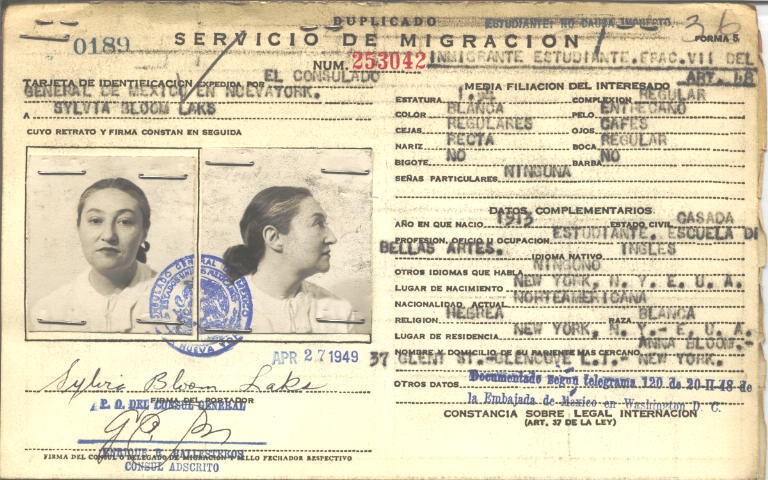 DUPLICADO
ESTUDIANTE: NO CAUSA IMPUESTO.
36
0189
SERVICIO DE MIGRACION
FORMA 5
NUM. 253042
INMIGRANTE ESTUDIANTE. FRAC. VII DEL
ART. 48
TARJETA DE IDENTIFICACION EXPEDIDA POR EL CONSULADO
GENERAL DE MEXICO EN NUEVAYORK.
A SYLVIA BLOOM LAKS
CUYO RETRATO Y FIRMA CONSTAN EN SEGUIDA
MEDIA FILIACION DEL INTERESADO
ESTATURA COMPLEXION REGULAR
COLOR BLANCA PELO ENTRECANO
CEJAS REGULARES OJOS CAFES
NARIZ RECTA BOCA REGULAR
BIGOTE. NO BARBA NO
SEÑAS PARTICULARES NINGUNA
DATOS COMPLEMENTARIOS
AÑO EN QUE NACIO ESTADO CIVIL CASADA
PROFESION, OFICIO U OCUPACION. ESTUDIANTE. ESCUELA DE
BELLAS ARTES.
IDIOMA NATIVO INGLES
OTROS IDIOMAS QUE HABLA NINGUNO
LUGAR DE NACIMIENTO NEW YORK, N. Y. E. U. A.
NACIONALIDAD ACTUAL NORTEAMERICANA
RELIGION HEBREA RAZA BLANCA
LUGAR DE RESIDENCIA NEW YORK, N. Y.- E. U. A.
NOMBRE Y DOMICILIO DE SU PARIENTE MAS CERCANO ANNA BLOOM.-
37 GLENY ST.-GLENCOVE L.I.- NEW YORK.
OTROS DATOS Documentado según telegrama 120 de 20-II-48 de
la Embajada de México en Washington D. C.
CONSTANCIA SOBRE LEGAL INTERNACION
(ART. 37 DE LA LEY)
CONSULADO GENERAL DE MEXICO
NUEVA YORK
APR 27 1949
Sylvia Bloom Laks
FIRMA DEL PORTADOR
P. O. DEL CONSUL GENERAL
ENRIQUE E. BALLESTEROS
FIRMA DEL CONSUL O DELEGADO DE MIGRACION Y SELLO FECHADOR RESPECTIVO
CONSUL ADSCRITO